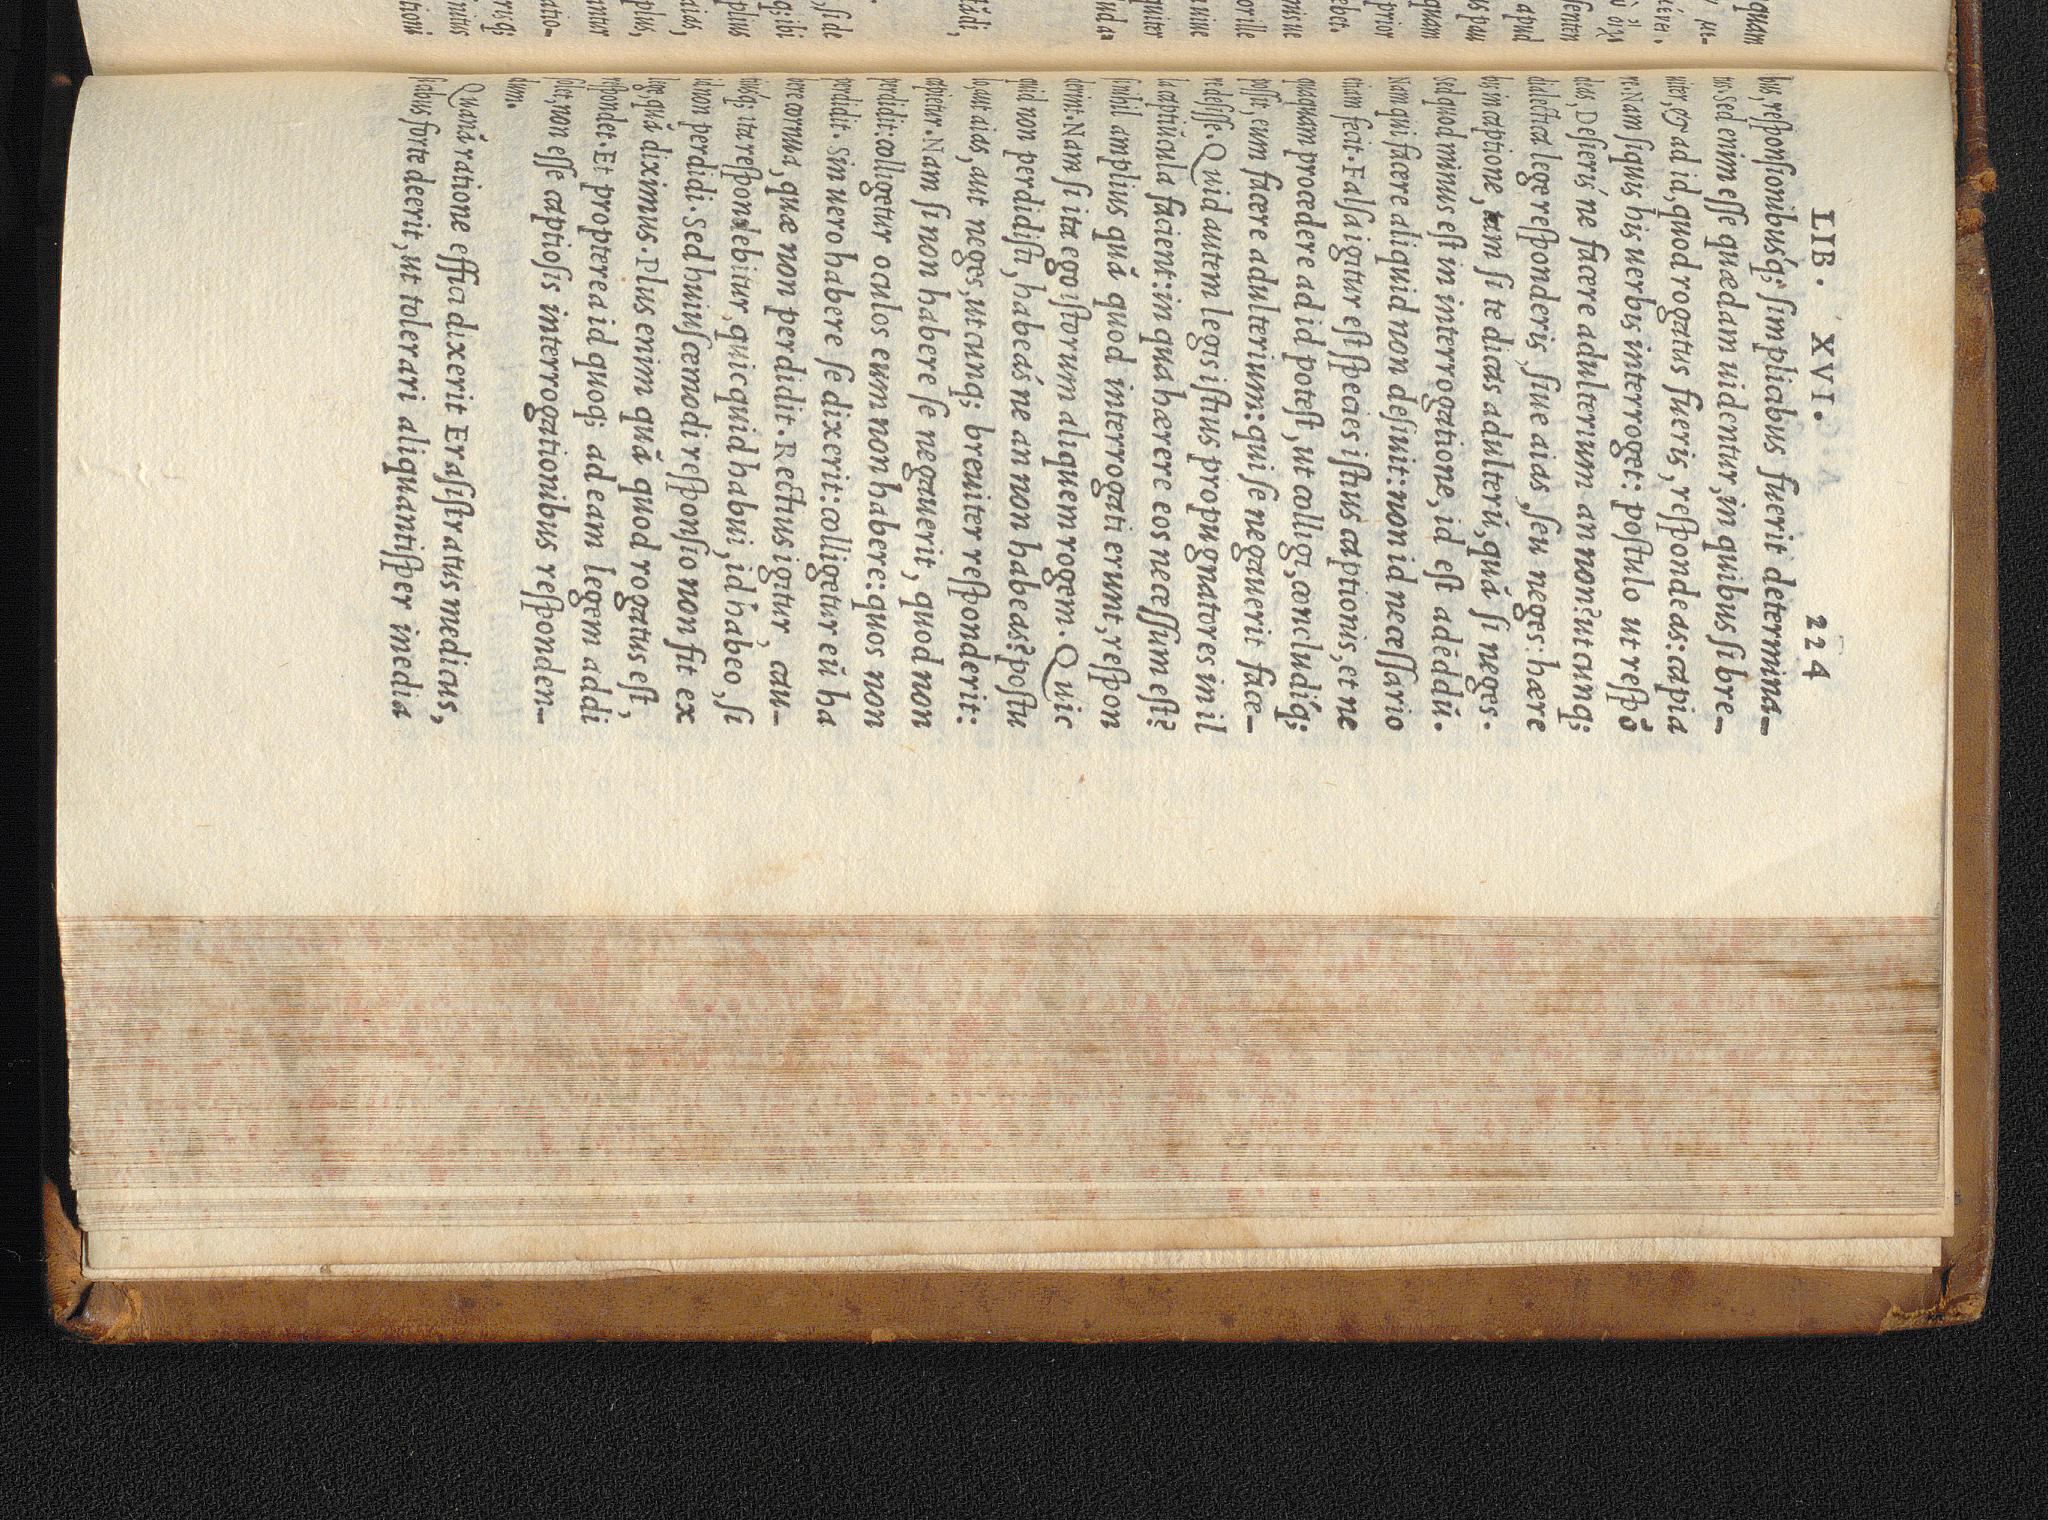 LIB. XVI. 224
bus, responsionibusq́; simplicibus fuerit determina-
tus. Sed enim esse quædam uidentur, in quibus si bre-
uiter, & ad id, quod rogatus fueris, respondeas: capia
re. Nam siquis his uerbis interroget: postulo ut respõ
deas, Desierís ne facere adulterium an non? utcunq;
dialectica lege responderis, siue aias, seu neges: hære
bis in captione, tam si te dicas adulterũ, quã si neges.
Sed quod minus est in interrogatione, id est addẽdũ.
Nam qui facere aliquid non desiuit: non id necessario
etiam fecit. Falsa igitur est species istius captionis, et ne
quaquam procedere ad id potest, ut colligi, concludíq;
possit, eum facere adulterium: qui se negauerit face-
re desisse. Quid autem legis istius propugnatores in il
la captiũcula facient: in qua hærere eos necessum est?
si nihil amplius quã quod interrogati erunt, respon
derint. Nam si ita ego istorum aliquem rogem. Quic
quid non perdidisti, habeás ne an non habeas? postu
lo, aut aias, aut neges, utcunq; breuiter responderit:
capietur. Nam si non habere se negauerit, quod non
perdidit: colligetur oculos eum non habere: quos non
perdidit. Sin uero habere se dixerit: colligetur eũ ha
bere cornua, quæ non perdidit. Rectius igitur, cau-
tiusq́; ita respondebitur, quicquid habui, id habeo, si
id non perdidi. Sed huiuscemodi responsio non fit ex
lege, quã diximus. Plus enim quã quod rogatus est,
respondet. Et propterea id quoq; ad eam legem addi
solet, non esse captiosis interrogationibus responden-
dum.
Quanã ratione effici dixerit Erasistratus medicus,
si cibus forte deerit, ut tolerari aliquantisper inedia